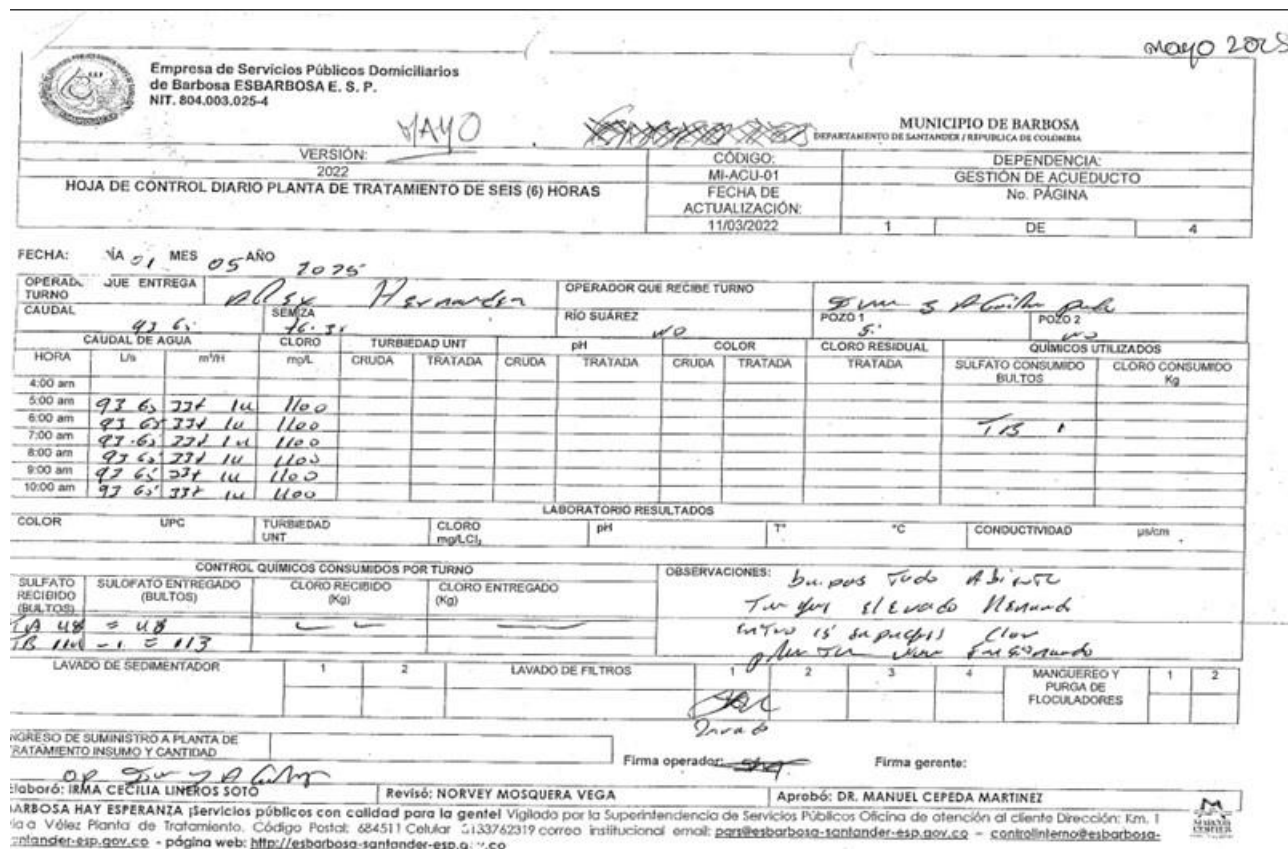 mayo 2025
Empresa de Servicios Públicos Domiciliarios
de Barbosa ESBARBOSA E. S. P.
NIT. 804.003.025-4
MAYO
MUNICIPIO DE BARBOSA
DEPARTAMENTO DE SANTANDER / REPUBLICA DE COLOMBIA
VERSIÓN: CÓDIGO: DEPENDENCIA:
2022 MI-ACU-01 GESTIÓN DE ACUEDUCTO
HOJA DE CONTROL DIARIO PLANTA DE TRATAMIENTO DE SEIS (6) HORAS FECHA DE ACTUALIZACIÓN: No. PÁGINA
11/03/2022 1 DE 4
FECHA: 01 MES 05 AÑO 2025
QUE ENTREGA TURNO Alex Hernandez OPERADOR QUE RECIBE TURNO
CAUDAL 93 65 SEMIZA RÍO SUÁREZ NO POZO 1 POZO 2
CAUDAL DE AGUA CLORO TURBIEDAD UNT pH COLOR CLORO RESIDUAL QUÍMICOS UTILIZADOS
HORA L/s m³/H mg/L CRUDA TRATADA CRUDA TRATADA CRUDA TRATADA TRATADA SULFATO CONSUMIDO BULTOS CLORO CONSUMIDO Kg
4:00 am
5:00 am 93 65 337 14 1100
6:00 am 93 65 337 14 1100 TB 1
7:00 am 93.65 337 14 1100
8:00 am 93 65 337 14 1100
9:00 am 93 65 337 14 1100
10:00 am 93 65 337 14 1100
LABORATORIO RESULTADOS
COLOR UPC TURBIEDAD UNT CLORO mg/LCl₂ pH T° °C CONDUCTIVIDAD µs/cm
CONTROL QUÍMICOS CONSUMIDOS POR TURNO OBSERVACIONES:
SULFATO RECIBIDO (BULTOS) SULOFATO ENTREGADO (BULTOS) CLORO RECIBIDO (Kg) CLORO ENTREGADO (Kg)
TA 48 = 48
TB 114 - 1 = 113
Todo
LAVADO DE SEDIMENTADOR 1 2 LAVADO DE FILTROS 1 2 3 4 MANGUEREO Y PURGA DE FLOCULADORES 1 2
INGRESO DE SUMINISTRO A PLANTA DE
TRATAMIENTO INSUMO Y CANTIDAD
Firma operador: Firma gerente:
Elaboró: IRMA CECILIA LINEROS SOTO Revisó: NORVEY MOSQUERA VEGA Aprobó: DR. MANUEL CEPEDA MARTINEZ
BARBOSA HAY ESPERANZA ¡Servicios públicos con calidad para la gente! Vigilado por la Superintendencia de Servicios Públicos Oficina de atención al cliente Dirección: Km. 1
vía a Vélez Planta de Tratamiento. Código Postal: 684511 Celular 3133762319 correo institucional email: pqrs@esbarbosa-santander-esp.gov.co – controlinterno@esbarbosa-
santander-esp.gov.co - página web: http://esbarbosa-santander-esp.gov.co